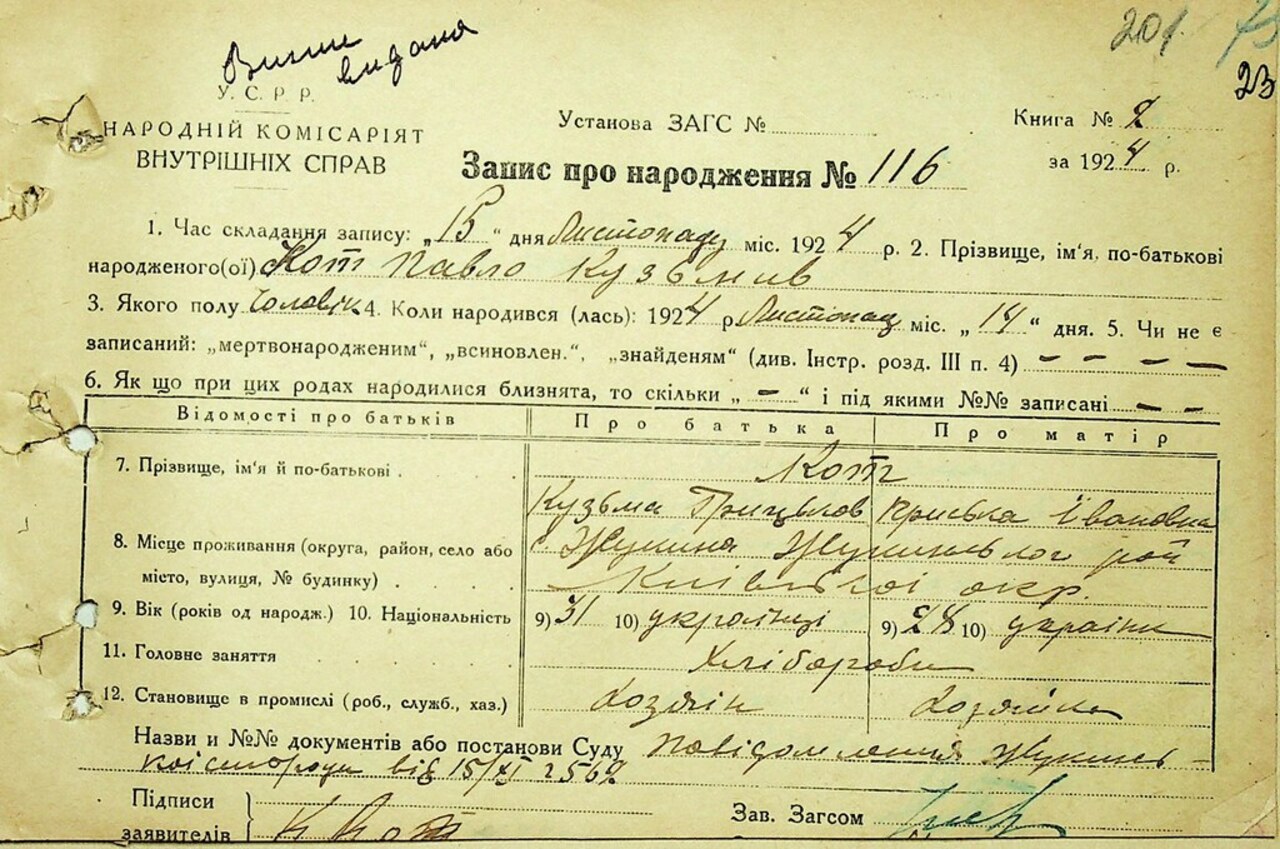 201 73
23
Виписи
видана
У. С. Р. Р.
НАРОДНІЙ КОМІСАРІЯТ
ВНУТРІШНІХ СПРАВ
Установа ЗАГС №
Книга № 2
за 1924 р.
Запис про народження № 116
1. Час складання запису: „15“ дня Листопаду міс. 1924 р. 2. Прізвище, ім'я, по-батькові
народженого(ої) Кот Павло Кузьмив
3. Якого полу Чоловік 4. Коли народився (лась): 1924 р Листопад міс. „14“ дня. 5. Чи не є
записаний: „мертвонародженим“, „всиновлен.“, „знайденям“ (див. Інстр. розд. III п. 4) — — — —
6. Як що при цих родах народилися близнята, то скільки „ — “ і під якими №№ записані — — —
Відомості про батьків Про батька Про матір
7. Прізвище, ім'я й по-батькові . Кот
Кузьма Грицьков Приська Івановна
8. Місце проживання (округа, район, село або с Жукина Жукинського рай
місто, вулиця, № будинку) . . Київської окр.
9. Вік (років од народж.) 10. Національність 9) 31 10) українці 9) 28 10) українк
11. Головне заняття . . . . Хлібороби
12. Становище в промислі (роб., служб., хаз.) Хозяін Хозяйка
Назви и №№ документів або постанови Суду Повідомлення Жукинь-
кої від 15/XI 2569
Підписи
заявителів К Кот
Зав. Загсом